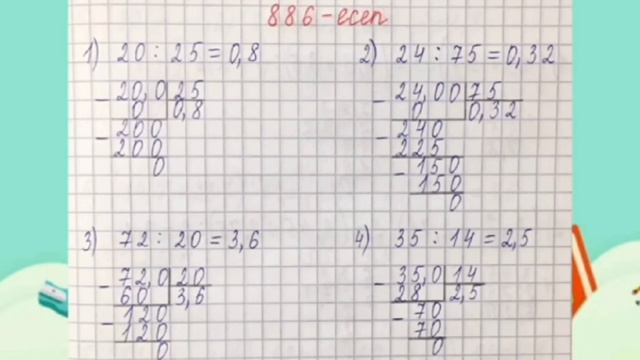 886-есеп
1) 20 : 25 = 0,8
20,0 25
0 0,8
200
200
0
2) 24 : 75 = 0,32
24,00 75
0 0,32
240
225
150
150
0
3) 72 : 20 = 3,6
72,0 20
60 3,6
120
120
0
4) 35 : 14 = 2,5
35,0 14
28 2,5
70
70
0